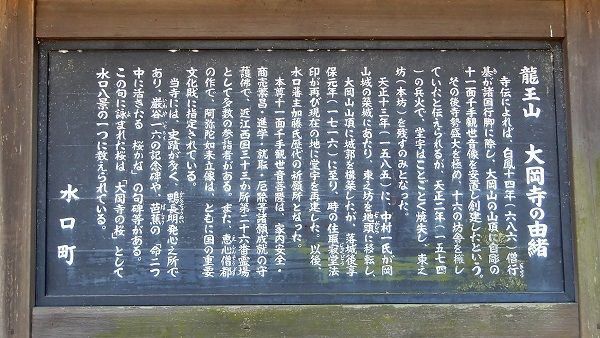 龍王山　大岡寺の由緒
寺伝によれば、白鳳十四年(六八六)僧行
基が諸国行脚に際し、大岡山の山頂に自彫の
十一面千手観世音像を安置し創建したという。
その後寺勢盛大を極め、十六の坊舎を擁し
ていたと伝えられるが、天正二年(一五七四
)の兵火で、堂宇はことごとく焼失し、東之
坊(本坊)を残すのみとなった。
天正十三年(一五八五)に、中村一氏が岡
山城の築城にあたり、東之坊を地頭に移転し、
大岡山山頂に城郭を構築したが、落城後享
保元年(一七一六)に至り、時の住職寂堂法
印が再び現在の地に堂宇を再建した。以後、
水口藩主加藤氏歴代の祈願所となった。
本尊十一面千手観世音菩薩は、家内安全・
商売繁昌・進学・就職・厄除等諸願成就の守
護佛で、近江西国三十三か所第二十六番霊場
として多数の参詣者がある。また、恵心僧都
の作で、阿弥陀如来立像は、ともに国の重要
文化財に指定されている。
当寺には、史蹟が多く、鴨長明発心之所で
あり、巌谷一六の記念碑や、芭蕉の「命二つ
中に活きたる　桜かな」の句碑等がある。
この句に詠まれた桜は、「大岡寺の桜」として
水口八景の一つに数えられている。
水口町